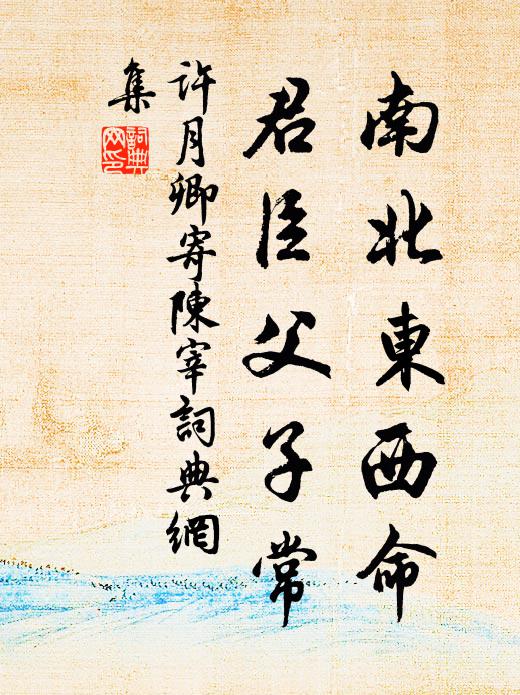 南北東西命
君臣父子常
許月卿寄陳宰詞典網
集
詞典網印